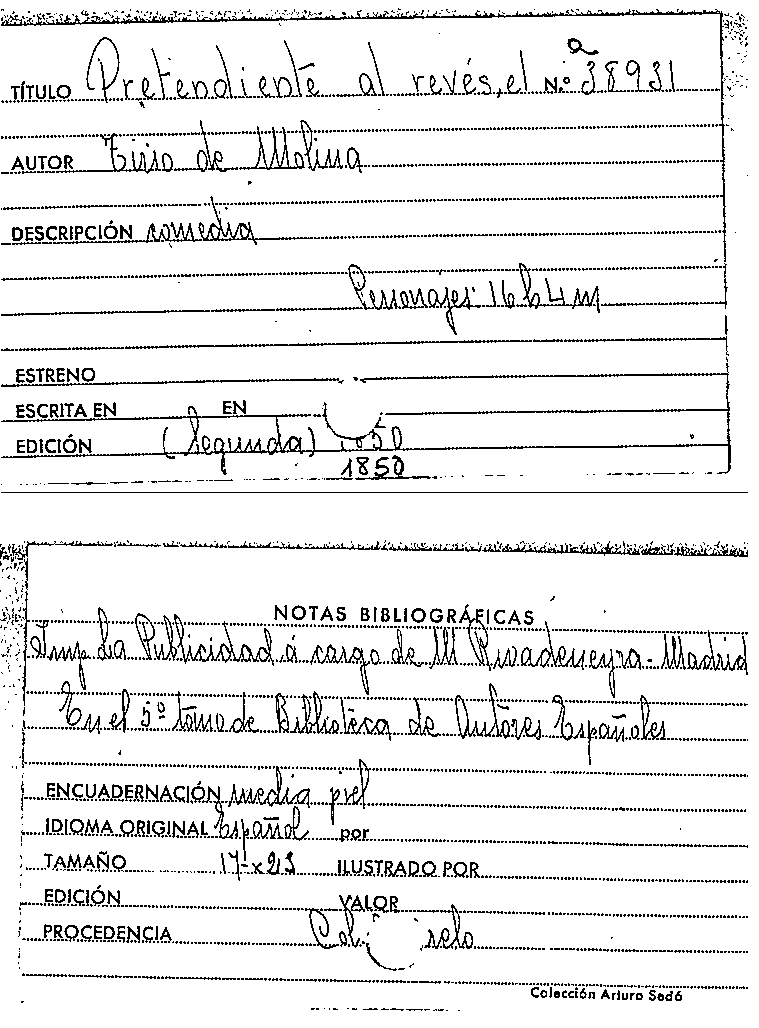 a
TÍTULO Pretendiente al revés, el N.º 38931
AUTOR Tirso de Molina
DESCRIPCIÓN comedia
Personajes: 16 h 4 m
ESTRENO
ESCRITA EN EN
EDICIÓN (Segunda) 1850
1850
NOTAS BIBLIOGRÁFICAS
Imp. La Publicidad á cargo de M Rivadeneyra - Madrid
En el 5º tomo de Biblioteca de Autores Españoles
ENCUADERNACIÓN media piel
IDIOMA ORIGINAL Español por
TAMAÑO 17 x 25 ILUSTRADO POR
EDICIÓN VALOR
PROCEDENCIA
Colección Arturo Sedó